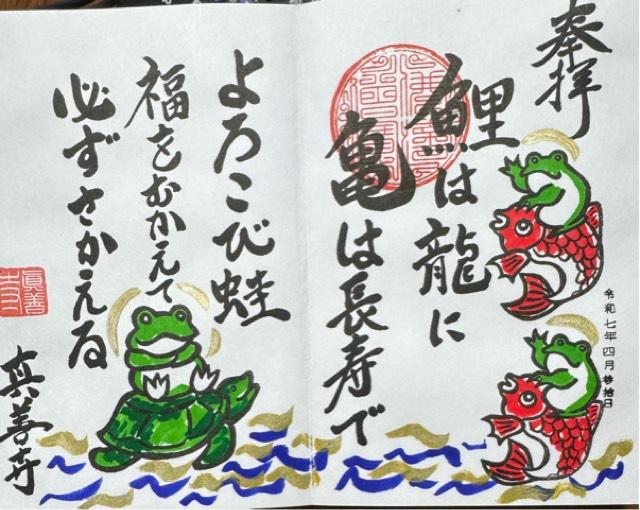 奉拝
鯉は龍に
亀は長寿で
令和七年四月参拾日
よろこび蛙
福をむかえて
必ずさかえる
真善寺
眞善